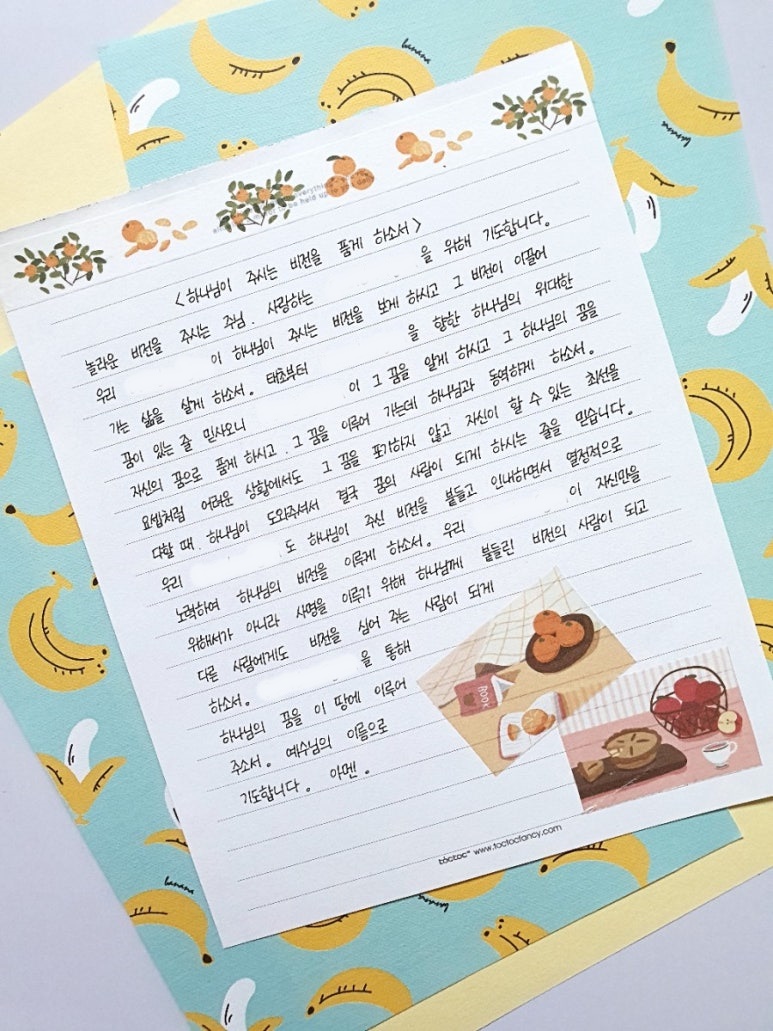 <하나님이 주시는 비전을 품게 하소서>
놀라운 비전을 주시는 주님. 사랑하는 을 위해 기도합니다.
우리 이 하나님이 주시는 비전을 보게 하시고 그 비전이 이끌어
가는 삶을 살게 하소서. 태초부터 을 향한 하나님의 위대한
꿈이 있는 줄 믿사오니 이 그 꿈을 알게 하시고 그 하나님의 꿈을
자신의 꿈으로 품게 하시고. 그 꿈을 이루어 가는데 하나님과 동역하게 하소서.
요셉처럼 어려운 상황에서도 그 꿈을 포기하지 않고 자신이 할 수 있는 최선을
다할 때. 하나님이 도와주셔서 결국 꿈의 사람이 되게 하시는 줄을 믿습니다.
우리 도 하나님이 주신 비전을 붙들고 인내하면서 열정적으로
노력하여 하나님의 비전을 이루게 하소서. 우리 이 자신만을
위해서가 아니라 사명을 이루기 위해 하나님께 붙들린 비전의 사람이 되고
다른 사람에게도 비전을 심어 주는 사람이 되게
하소서. 을 통해
하나님의 꿈을 이 땅에 이루어
주소서. 예수님의 이름으로
기도합니다. 아멘.
toctoc™ www.toctocfancy.com
banana
banana
banana
banana